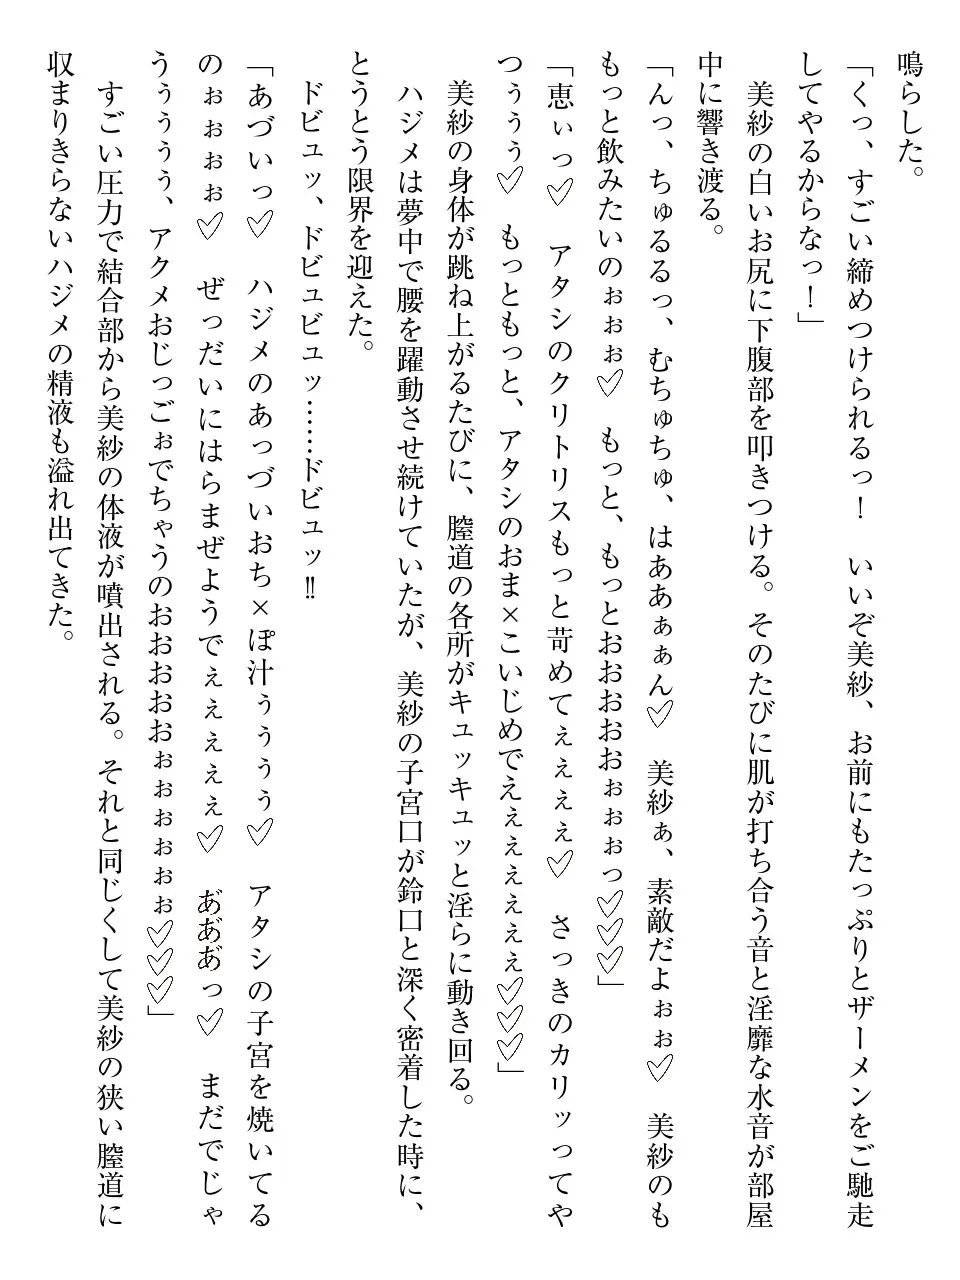 鳴らした。
「くっ、すごい締めつけられるっ！　いいぞ美紗、お前にもたっぷりとザーメンをご馳走
してやるからなっ！」
　美紗の白いお尻に下腹部を叩きつける。そのたびに肌が打ち合う音と淫靡な水音が部屋
中に響き渡る。
「んっ、ちゅるるっ、むちゅちゅ、はああぁぁん♡　美紗ぁ、素敵だよぉぉ♡　美紗のも
もっと飲みたいのぉぉぉ♡　もっと、もっとおおおおおぉぉぉっ♡♡♡」
「恵ぃっ♡　アタシのクリトリスもっと苛めてぇぇぇぇ♡　さっきのカリッってや
つぅぅぅ♡　もっともっと、アタシのおま×こいじめでえぇぇぇぇぇぇ♡♡♡」
　美紗の身体が跳ね上がるたびに、膣道の各所がキュッキュッと淫らに動き回る。
　ハジメは夢中で腰を躍動させ続けていたが、美紗の子宮口が鈴口と深く密着した時に、
とうとう限界を迎えた。
　ドビュッ、ドビュビュッ……ドビュッ‼
「あづいっ♡　ハジメのあっづいおち×ぽ汁ぅぅぅぅ♡　アタシの子宮を焼いてる
のぉぉぉぉ♡　ぜっだいにはらまぜようでぇぇぇぇぇ♡　あ゙あ゙あ゙っ♡　まだでじゃ
うぅぅぅぅ、アクメおじっごぉでちゃうのおおおおおぉぉぉぉぉぉ♡♡♡」
　すごい圧力で結合部から美紗の体液が噴出される。それと同じくして美紗の狭い膣道に
収まりきらないハジメの精液も溢れ出てきた。